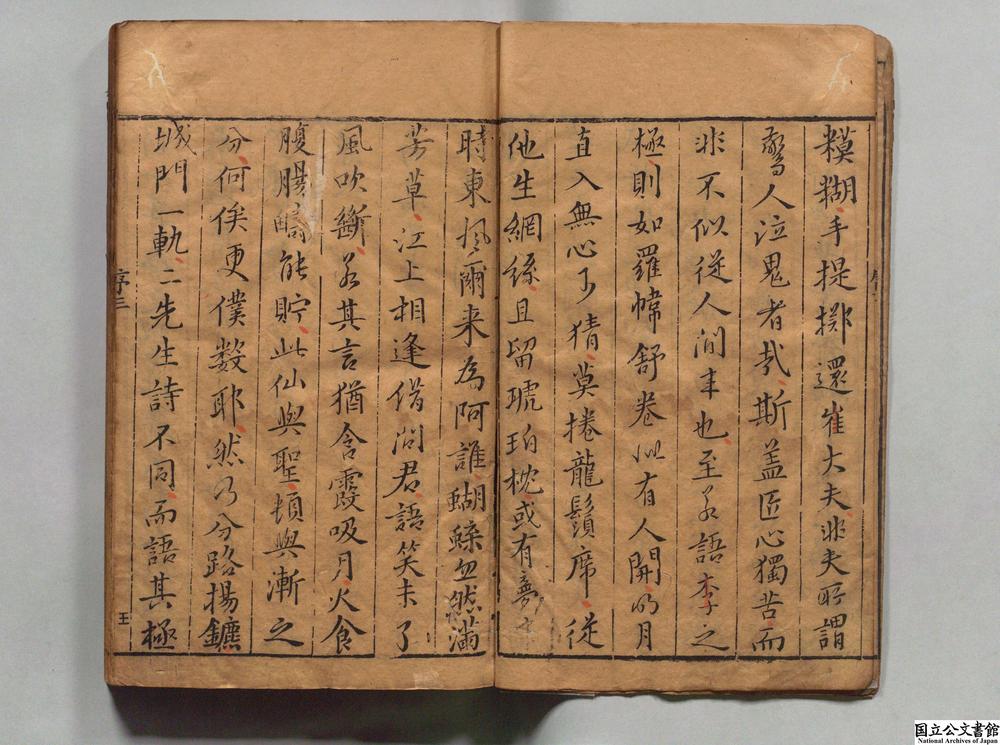 糢糊手提擲還崔大夫非夫所謂
驚人泣鬼者哉斯盖匠心獨苦而
非不似從人間来也至若語李之
極則如羅幃舒卷似有人開明月
直入無心可猜莫捲龍鬚席從
他生網絲且留琥珀枕或有夢来
時東風爾来為阿誰蝴蝶忽然滿
芳草江上相逢借問君語笑未了
風吹斷若其言猶含霞吸月火食
腹腸疇能貯此仙與聖頓與漸之
分何俟更僕数耶然乃分路揚鑣
城門一軌二先生詩不同而語其極
序三
王
国立公文書館
National Archives of Japan